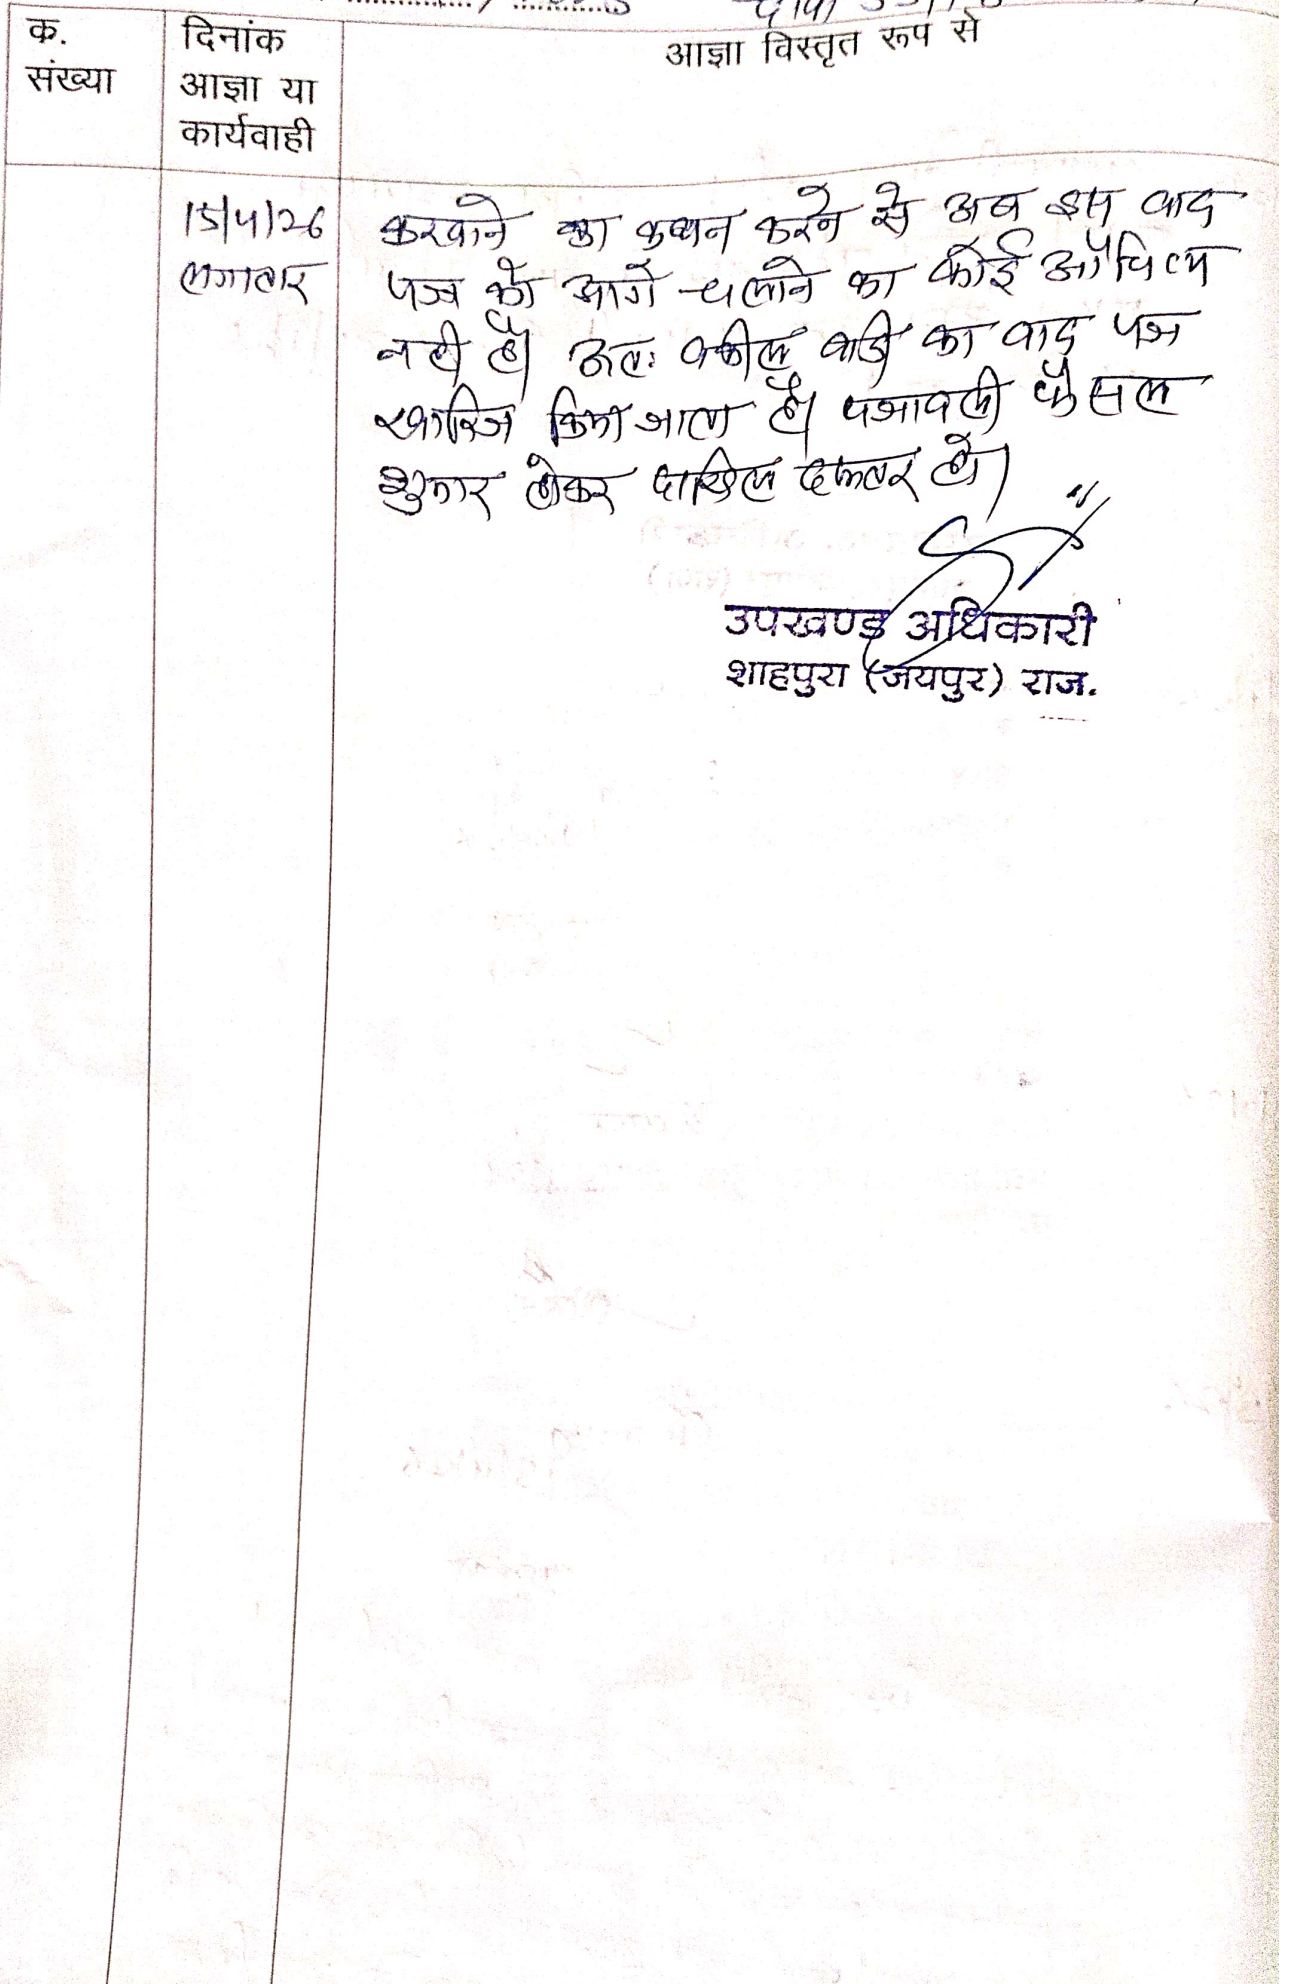 क.
संख्या
दिनांक
आज्ञा या
कार्यवाही
आज्ञा विस्तृत रूप से
15/4/26
लगातार
करवाने का कथन करने से अब इस वाद
पत्र को आगे चलाने का कोई औचित्य
नही है। अतः वकील वादी का वाद पत्र
खारिज किया जाता है। पत्रावली फैसल
शुमार होकर दाखिल दफ्तर हो।
उपखण्ड अधिकारी
शाहपुरा (जयपुर) राज.